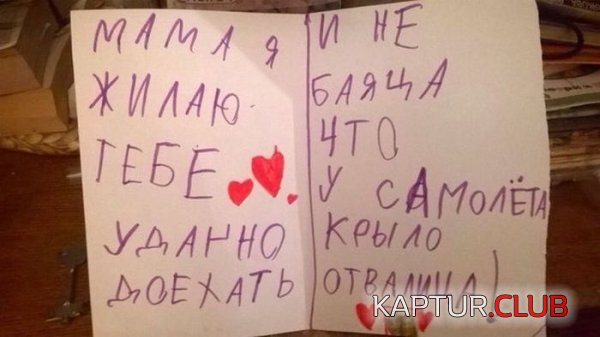 МАМА Я
ЖИЛАЮ
ТЕБЕ
УДАЧНО
ДОЕХАТЬ
И НЕ
БАЯЦА
ЧТО
У САМОЛЁТА
КРЫЛО
ОТВАЛИЦА!
KAPTUR.CLUB